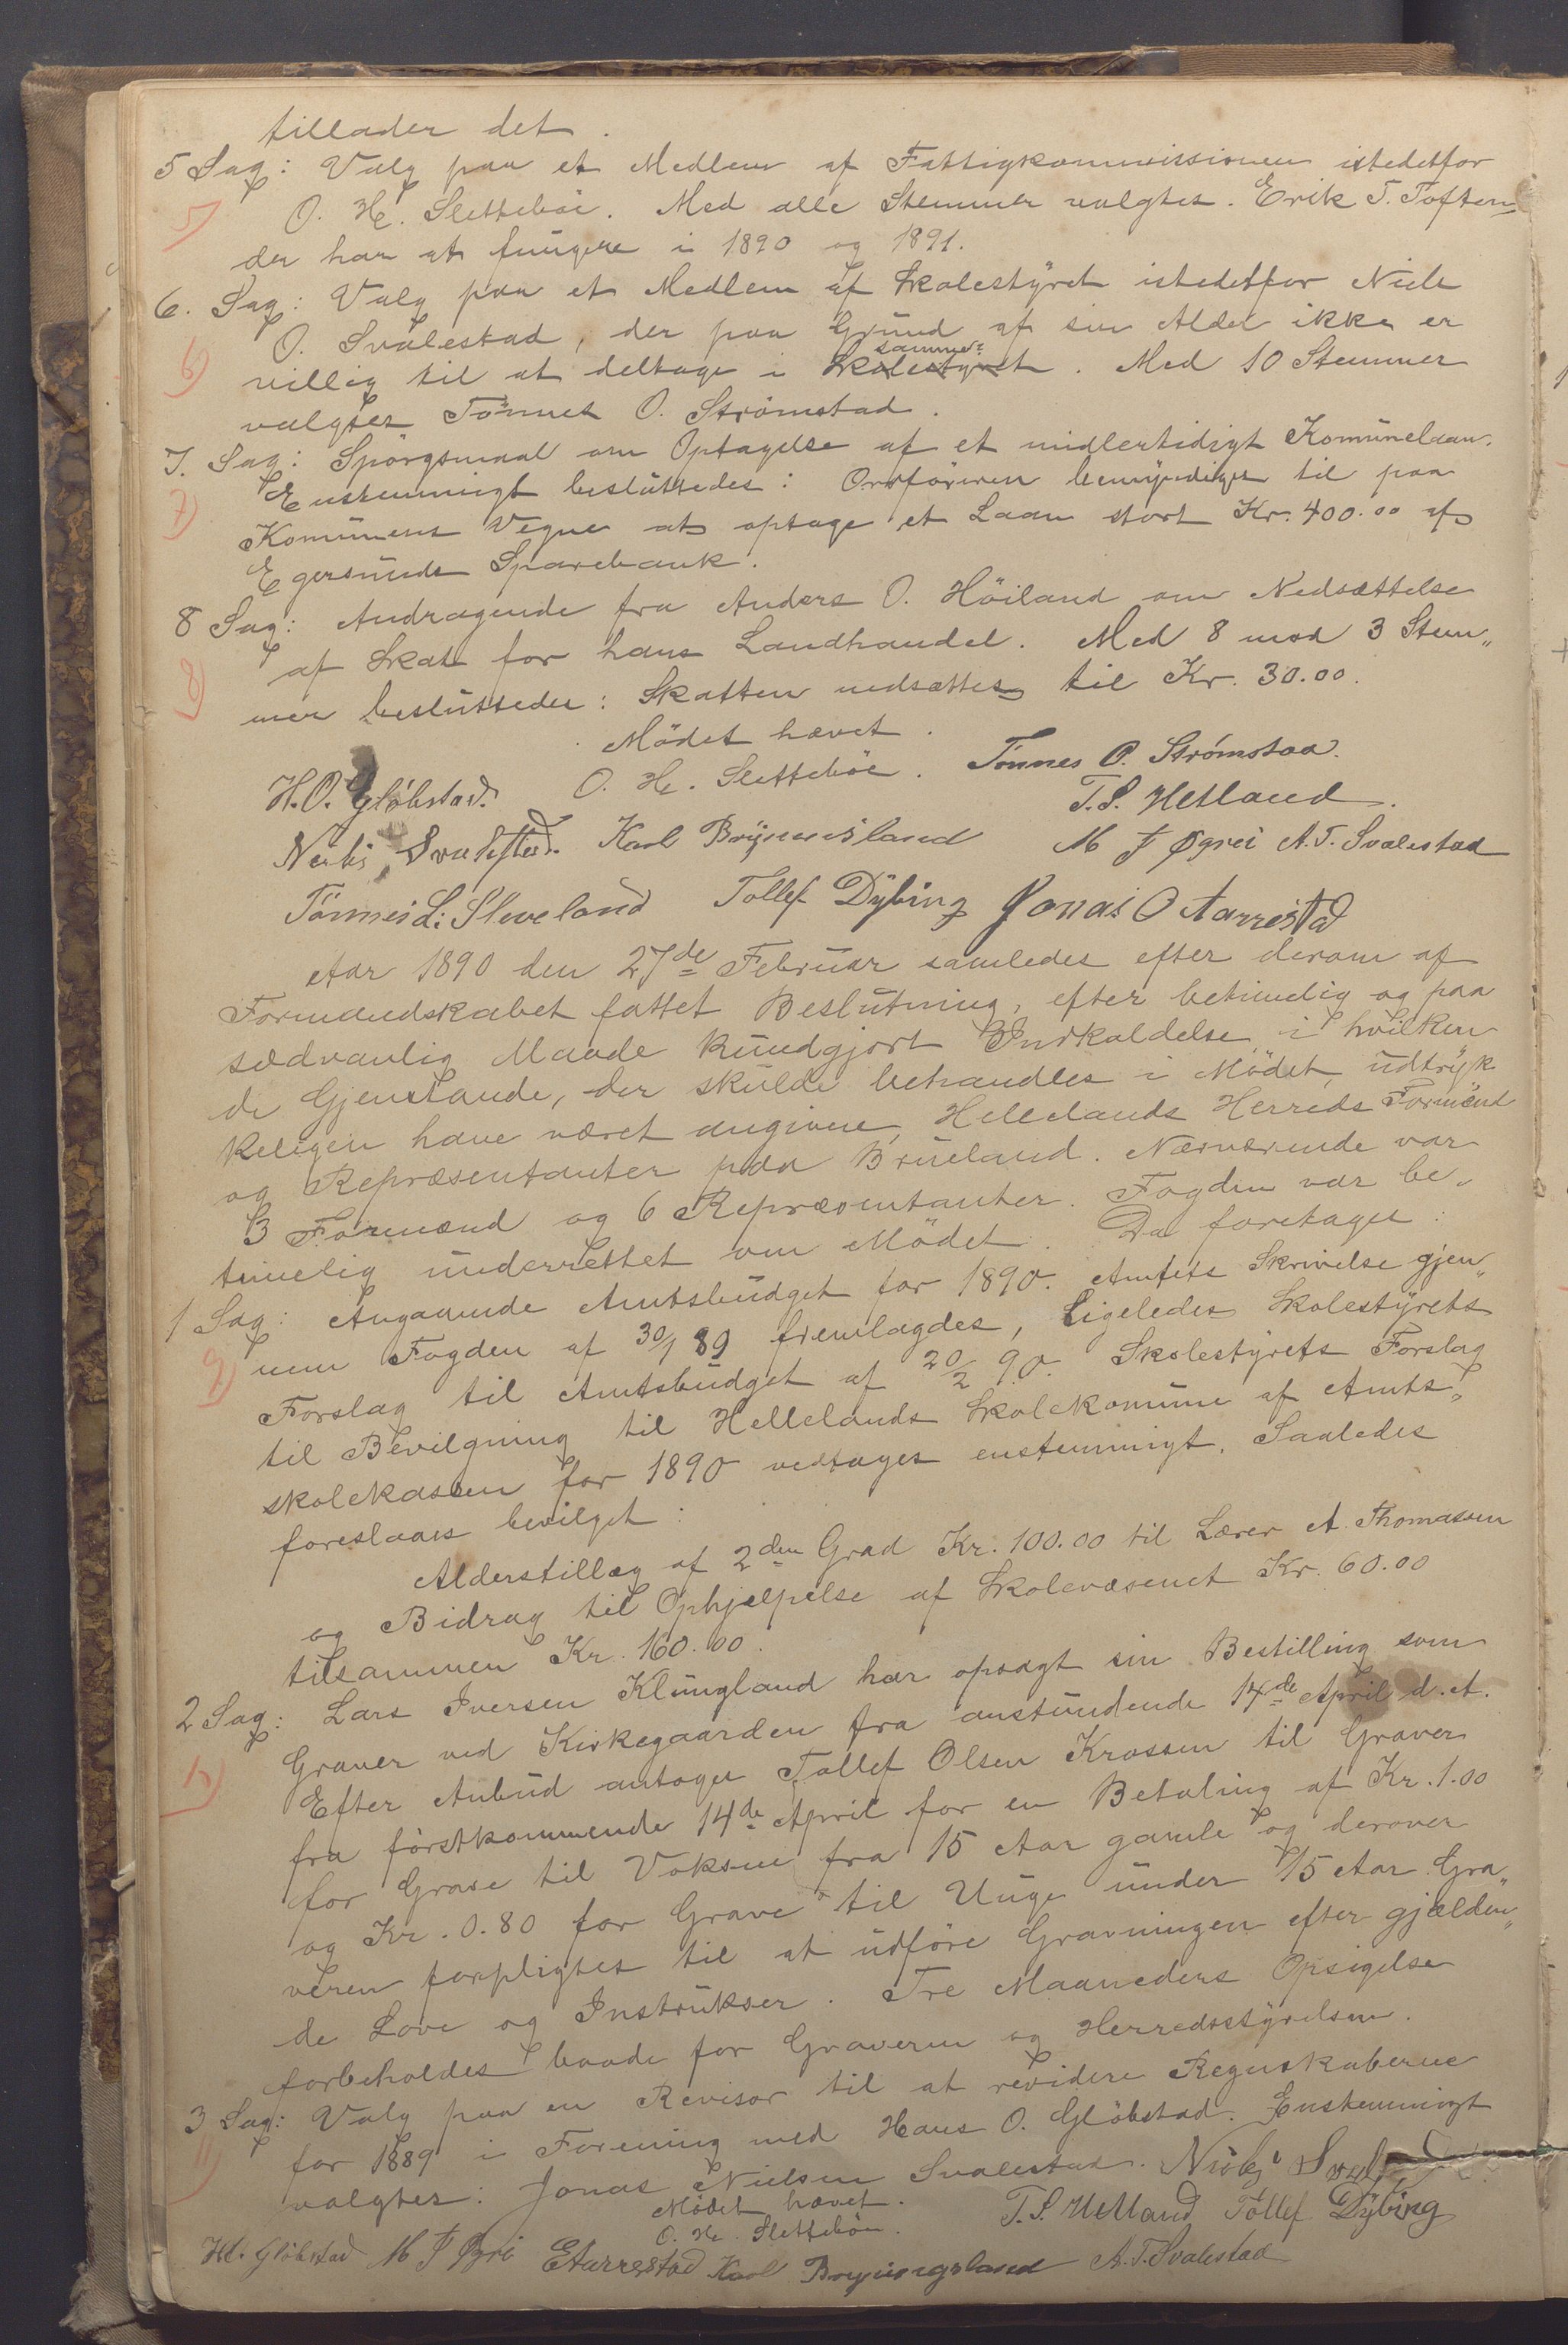 tillader det.
5 Sag: Valg paa et Medlem af Fattigkommissionen istedetfor
5)
O. H. Slettebøe. Med alle Stemmer valgtes. Erik T. Toften
der har at fungere i 1890 og 1891.
6. Sag: Valg paa et Medlem af Skolestyret istedetfor Niels
O. Svalestad, der paa Grund af sin Alder ikke er
6)
samme
villig til at deltage i Skolestyret. Med 10 Stemmer
valgtes Tönnes O. Strömstad.
7. Sag: Spörgsmaal om Optagelse af et midlertidigt Komünelaan.
Enstemmigt beslüttedes: Ordföreren bemyndiges til paa
7)
Komünens Vegne at optage et Laan stort Kr. 400.00 af
Egersunds Sparebank.
8 Sag: Andragende fra Anders O. Höiland om Nedsættelse
af Skat for hans Landhandel. Med 8 mod 3 Stem„
8)
mer beslüttedes: Skatten nedsættes til Kr. 30.00.
Mödet hævet.
H.O. Gløbstad. O. H. Slettebøe. Tønnes O. Strømstad.
T. S. Hetland.
Niels Svalestad. Karl Bryunisland M J Øgrei A. T. Svalestad
Tönnes L: Sleveland Tollef Dybing Jonas O Aarrestad
Aar 1890 den 27de Februar samledes efter derom af
Formandskabet fattet Beslutning, efter betimelig og paa
sædvanlig Maade kundgjort Indkaldelse, i hvilken
de Gjenstande, der skulde behandles i Mödet, udtryk
keligen have været angivne, Hellelands Herreds Formænd
og Repræsentanter paa Brueland. Nærværende var
3 Formænd og 6 Repræsentanter. Fogden var be„
timelig underrettet om Mödet. Da foretages:
1 Sag: Angaaende Amtsbudget for 1890. Amtets Skrivelse gjen„
nem Fogden af 30/1 89 fremlagdes, ligeledes Skolestyrets
9)
Forslag til Amtsbudget af 20/2 90. Skolestyrets Forslag
til Bevilgning til Hellelands Skolekomüne af Amts„
skolekassen for 1890 vedtages enstemmigt. Saaledes
foreslaaes bevilget:
Alderstillæg af 2den Grad Kr. 100.00 til Lærer A. Thomassen
og Bidrag til Ophjælpelse af Skolevæsenet Kr. 60.00
tilsammen Kr. 160.00.
2 Sag: Lars Iversen Klungland har opsagt sin Bestilling som
Graver ved Kirkegaarden fra anstundende 14de April d. A.
10)
Efter Anbud antages Tollef Olsen Krossen til Graver
fra förstkommende 14de April for en Betaling af Kr. 1.00
for Grave til Voksne fra 15 Aar gamle og derover
og Kr. 0.80 for Grave til Unge under 15 Aar. Gra„
veren forpligtes til at udföre Gravningen efter gjælden„
de Love og Instrukser. Tre Maaneders Opsigelse
forbeholdes baade for Graveren og Herredsstyrelsen.
3 Sag: Valg paa en Revisor til at revidere Regnskaberne
for 1889 i Forening med Hans O. Glöbstad. Enstemmigt
11)
valgtes: Jonas Nielsen Svalestad. Niels
Mödet hævet.
O. H. Slettebøe. T. S. Hetland Tollef Dybing
H. Gløbstad M J Øgrei E Aarrestad Karl Bryningsland A. T. Svalestad